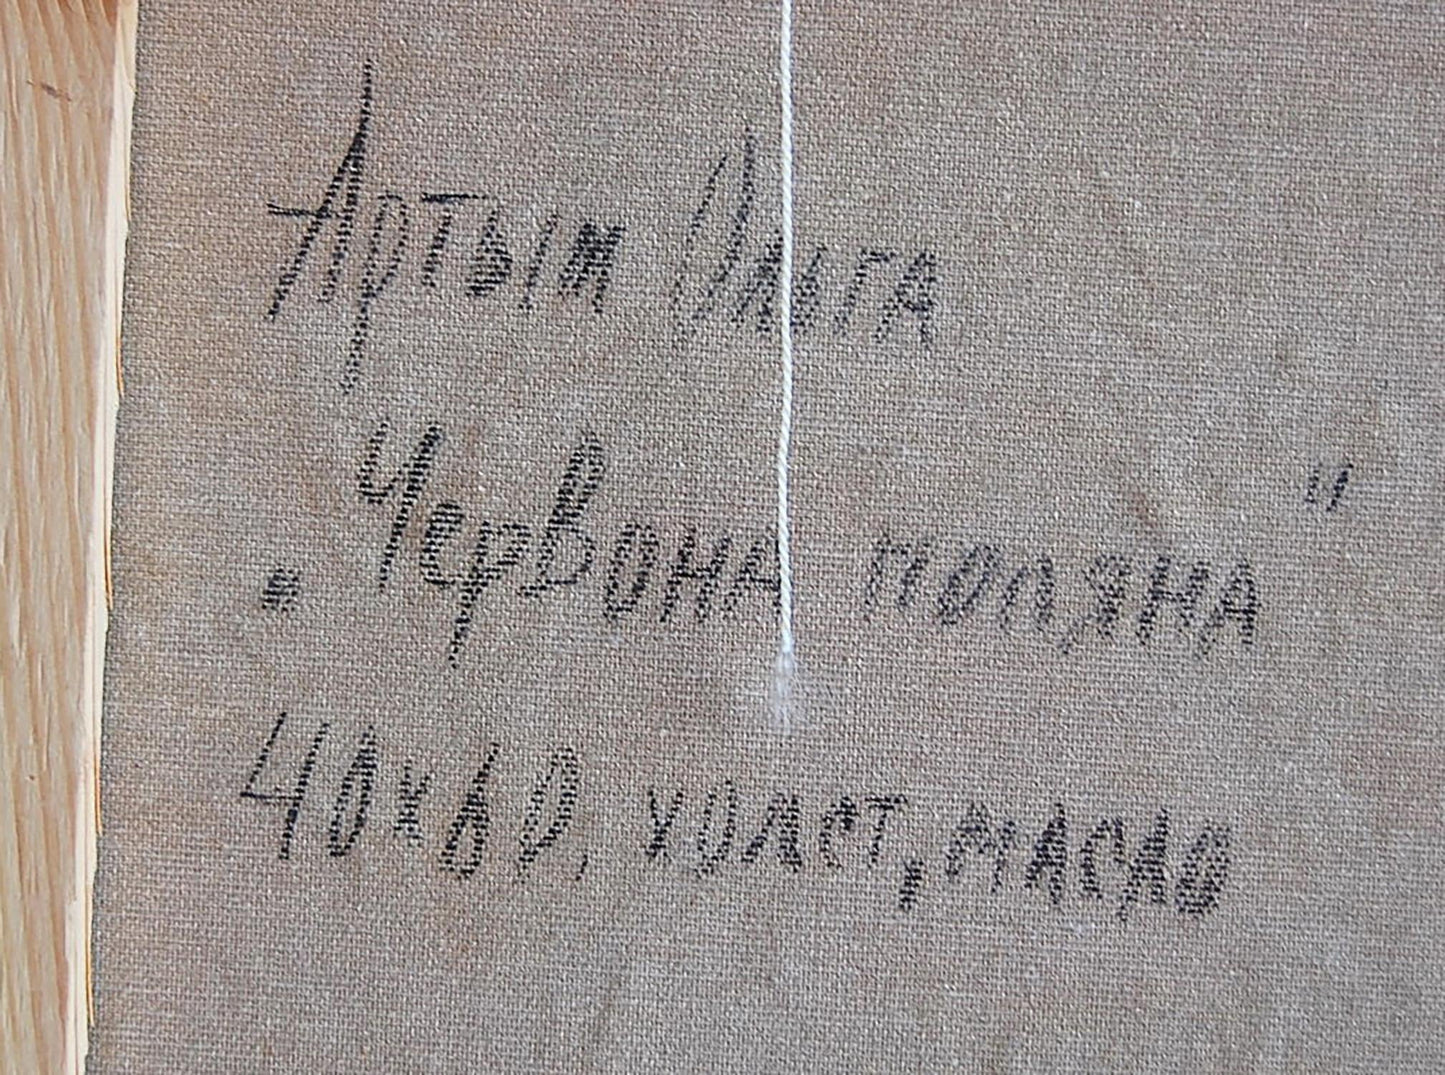 Артым Ольга
"Червона поляна"
40х60, холст, масло